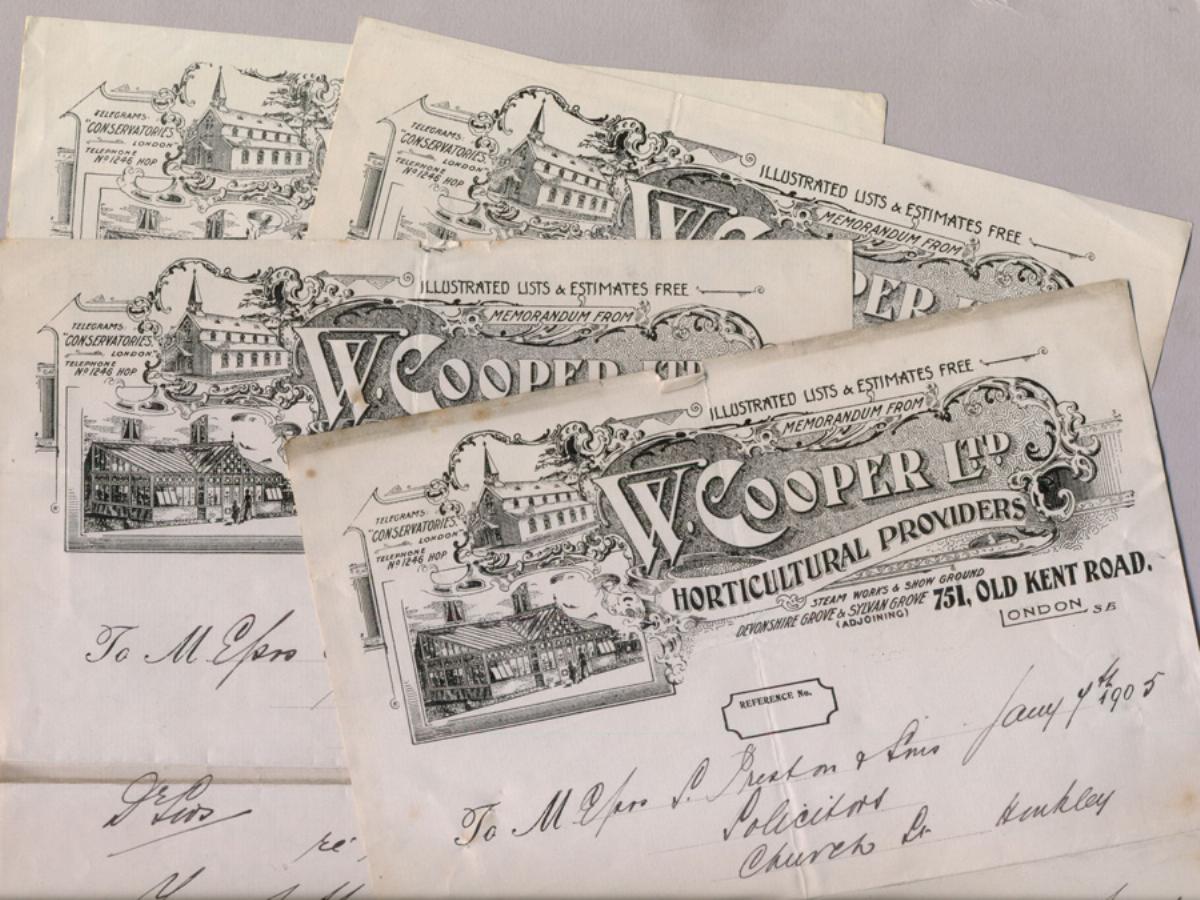 TELEGRAMS.
"CONSERVATORIES.
LONDON"
TELEPHONE
No 1246 HOP
TELEGRAMS.
"CONSERVATORIES.
LONDON"
TELEPHONE
No 1246 HOP
ILLUSTRATED LISTS & ESTIMATES FREE
MEMORANDUM FROM
W. CO
PER L
TELEGRAMS.
"CONSERVATORIES.
LONDON"
TELEPHONE
No 1246 HOP
ILLUSTRATED LISTS & ESTIMATES FREE
MEMORANDUM FROM
W. COOPER LTD
To Messrs
Dr Sirs
re
ILLUSTRATED LISTS & ESTIMATES FREE
MEMORANDUM FROM
W. COOPER LTD
HORTICULTURAL PROVIDERS
TELEGRAMS.
"CONSERVATORIES.
LONDON"
TELEPHONE
No 1246 HOP
STEAM WORKS & SHOW GROUND
DEVONSHIRE GROVE & SYLVAN GROVE
(ADJOINING)
751, OLD KENT ROAD.
LONDON S.E.
REFERENCE No.
Jany 7th 1905
To Messrs S. Preston & Sons
Solicitors
Church St Hinkley